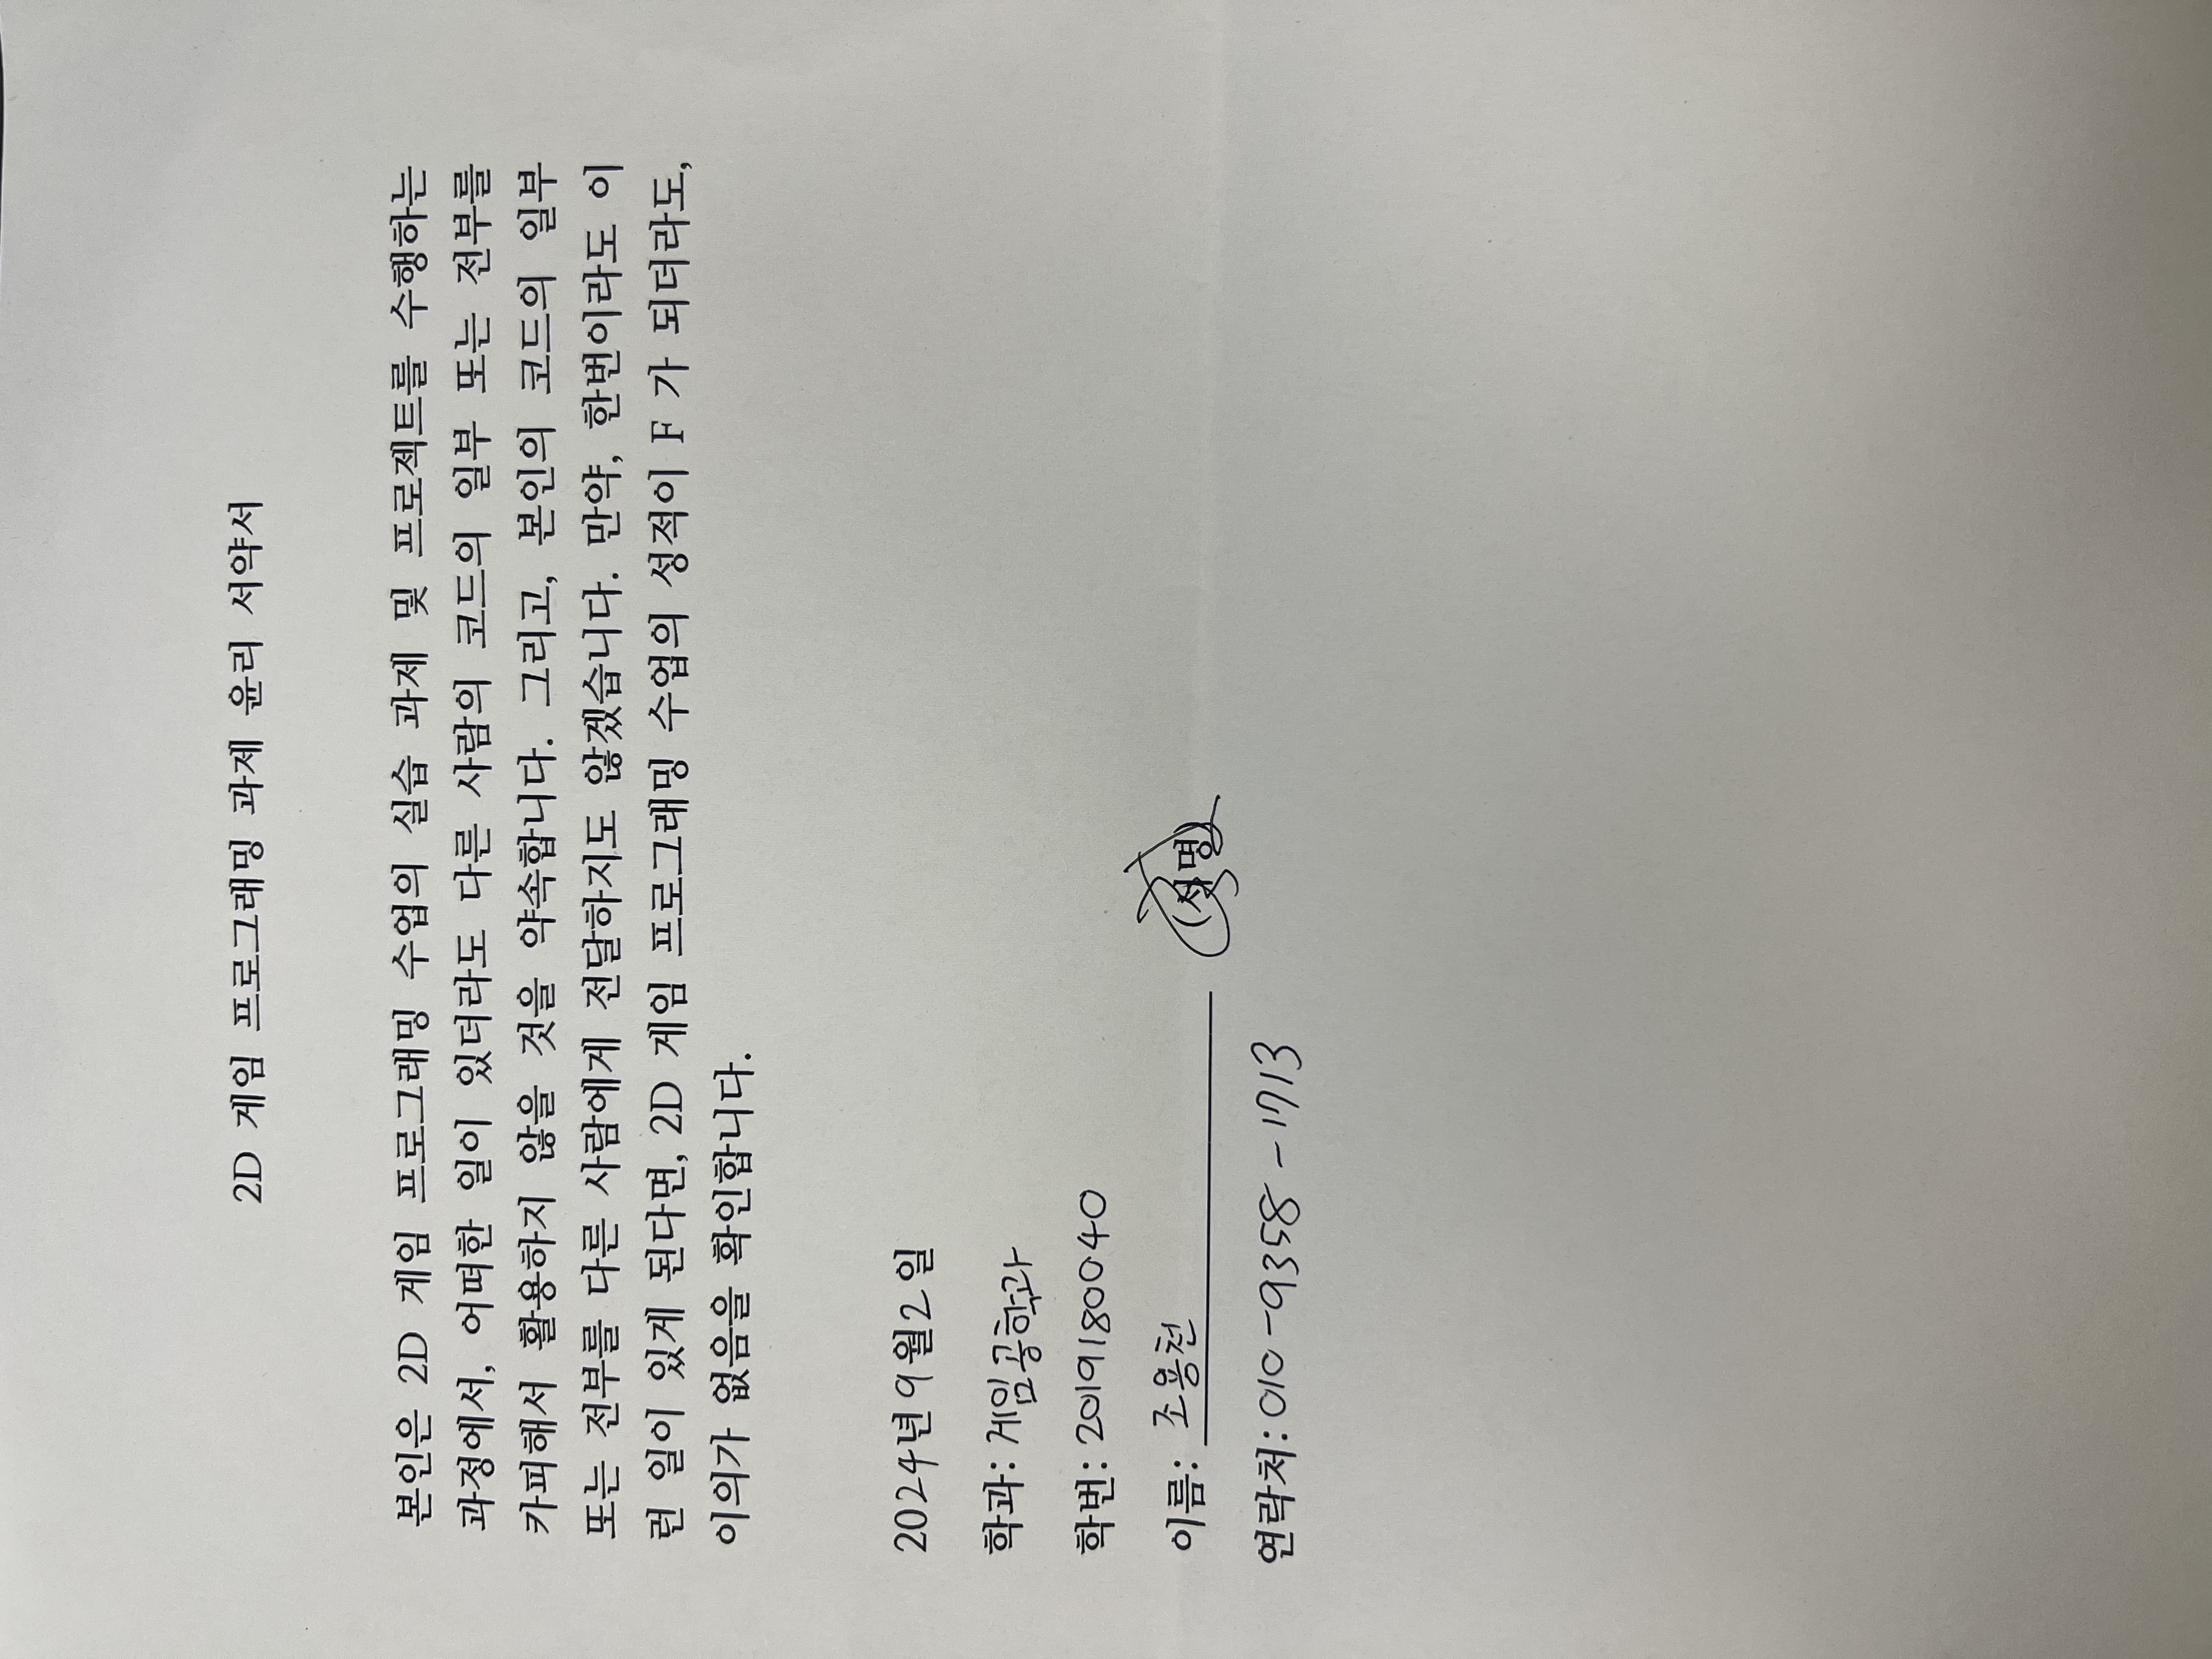 2D 게임 프로그래밍 과제 윤리 서약서
본인은 2D 게임 프로그래밍 수업의 실습 과제 및 프로젝트를 수행하는
과정에서, 어떠한 일이 있더라도 다른 사람의 코드의 일부 또는 전부를
카피해서 활용하지 않을 것을 약속합니다. 그리고, 본인의 코드의 일부
또는 전부를 다른 사람에게 전달하지도 않겠습니다. 만약, 한번이라도 이
런 일이 있게 된다면, 2D 게임 프로그래밍 수업의 성적이 F 가 되더라도,
이의가 없음을 확인합니다.
2024년 9월 2일
학과: 게임공학과
학번: 2019180040
이름: 조용천 (서명)
연락처: 010-9358-1713